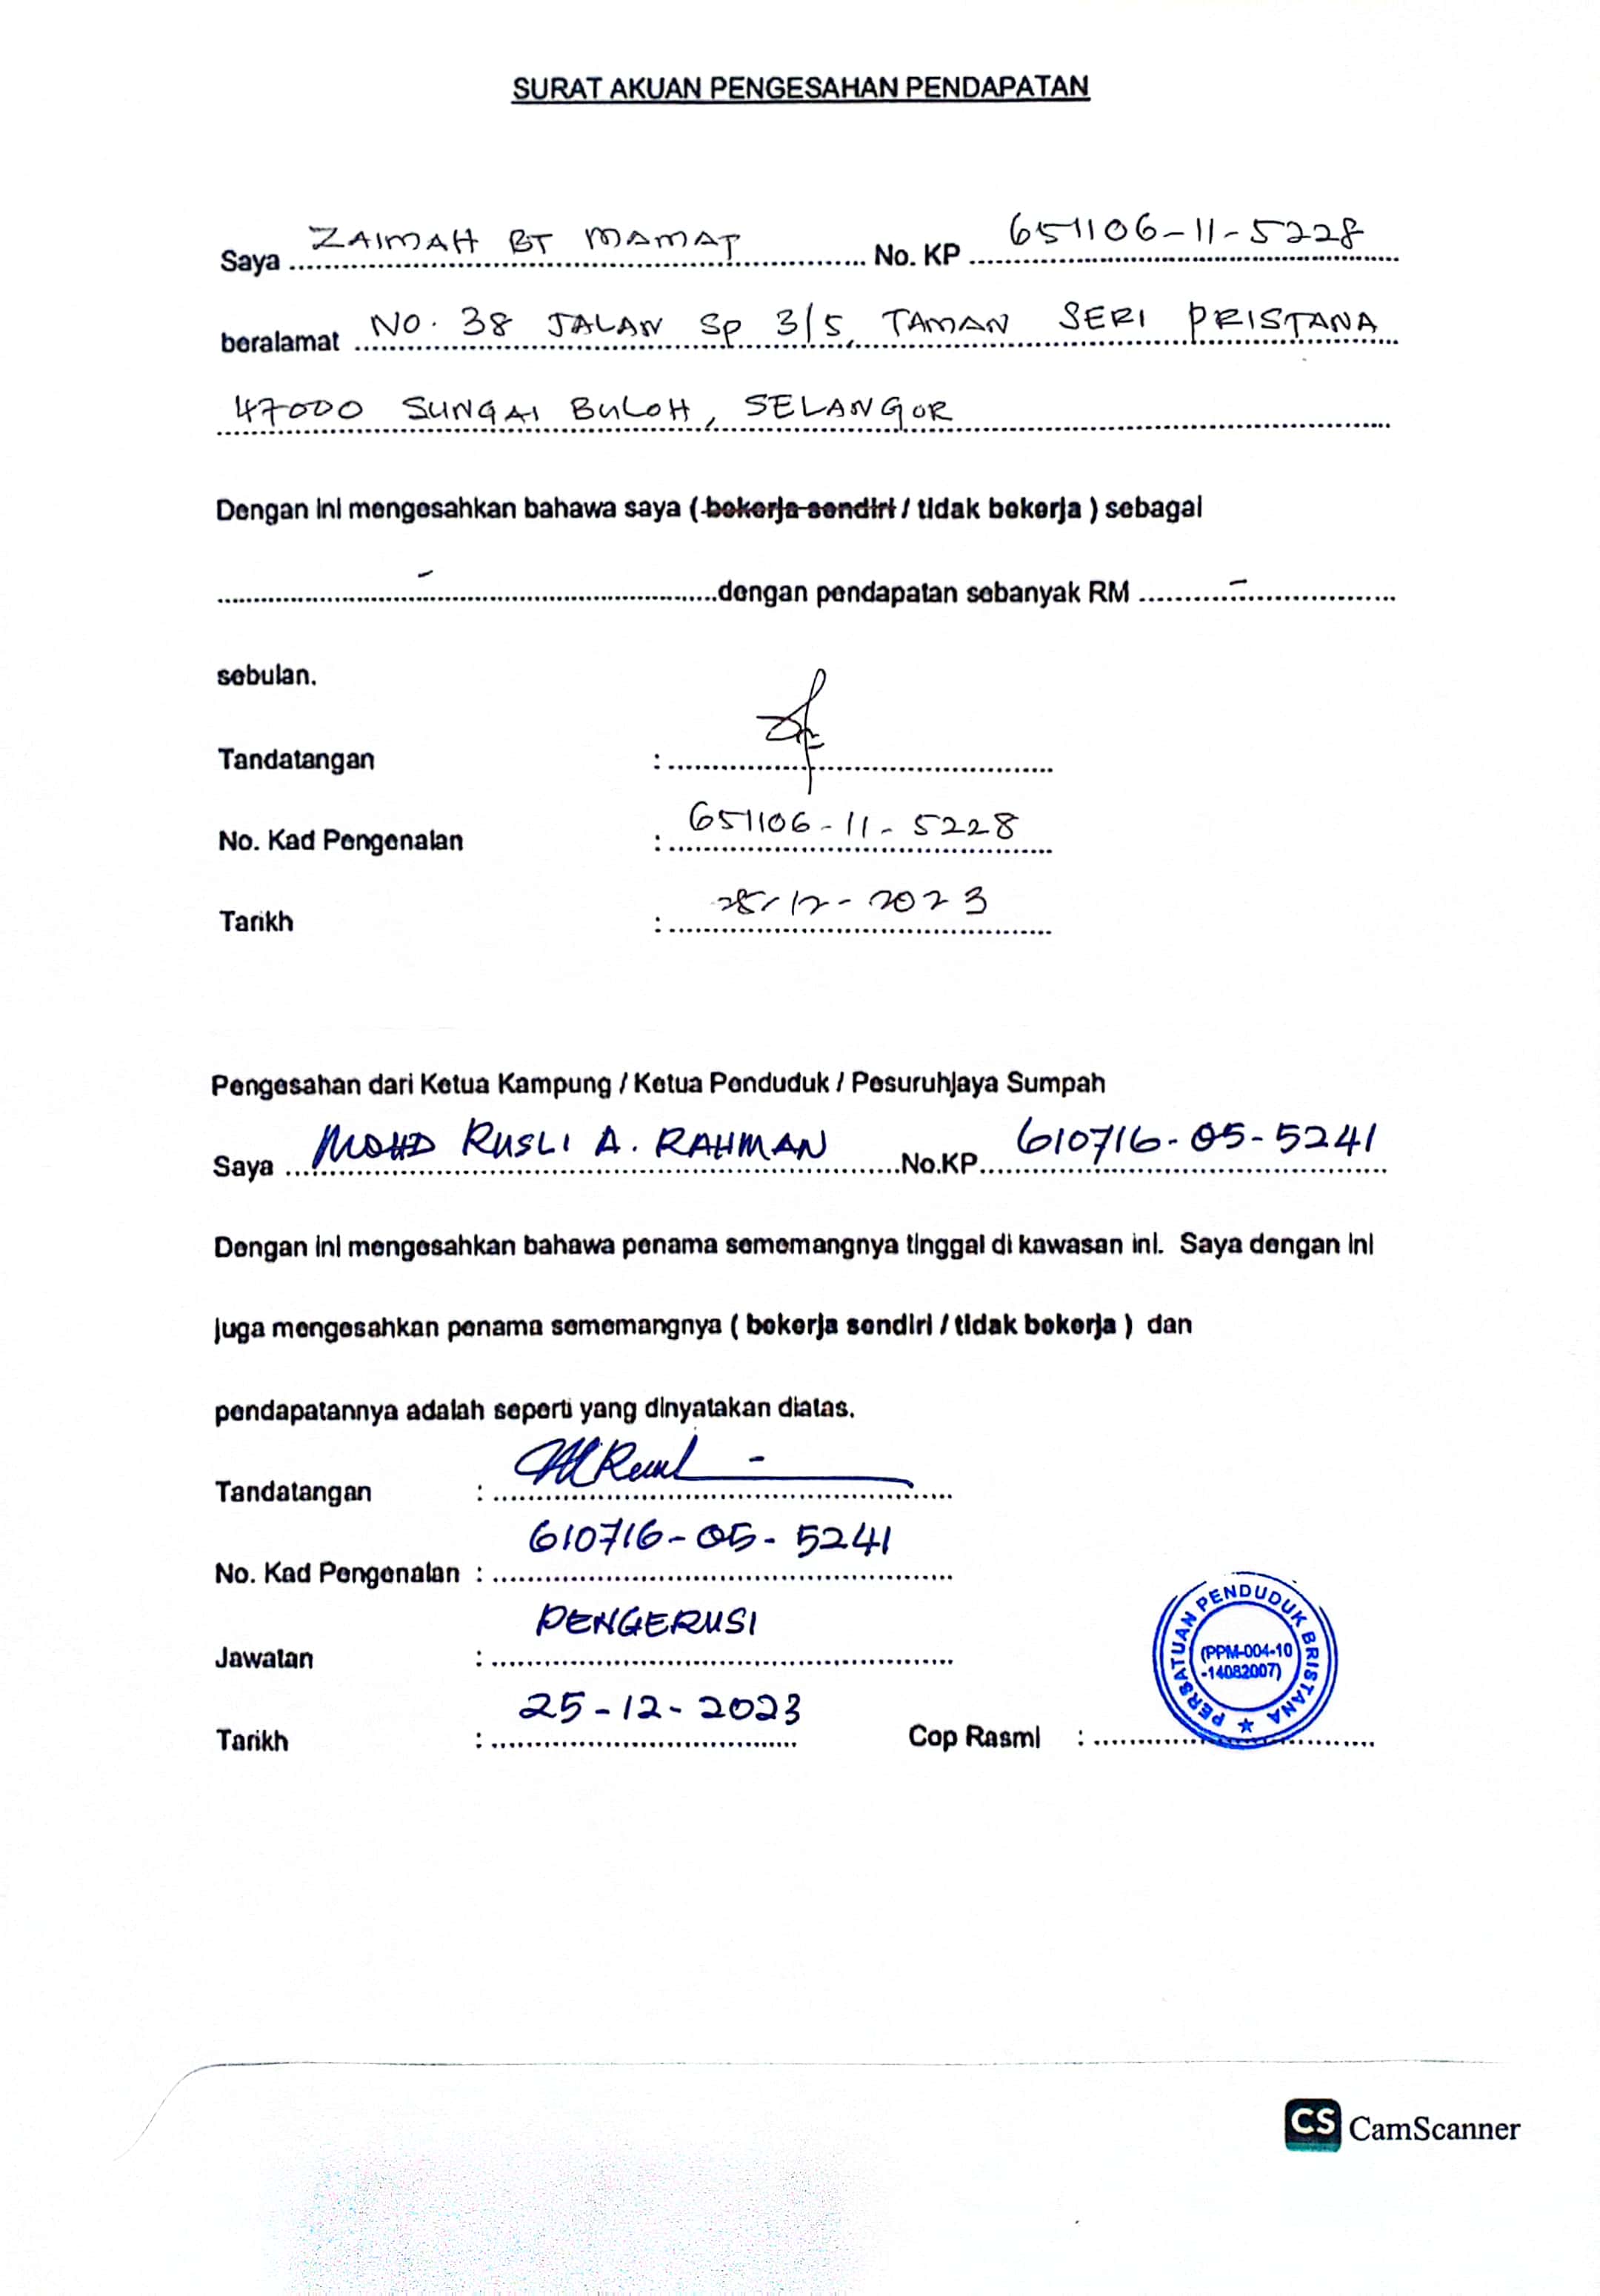 SURAT AKUAN PENGESAHAN PENDAPATAN
Saya ZAIMAH BT MAMAT No. KP 651106-11-5228
beralamat NO. 38 JALAN SP 3/5, TAMAN SERI PRISTANA
47000 SUNGAI BULOH, SELANGOR
Dengan ini mengesahkan bahawa saya ( bekerja sendiri / tidak bekerja ) sebagai
- dengan pendapatan sebanyak RM -
sebulan.
Tandatangan :
No. Kad Pengenalan : 651106-11-5228
Tarikh : 25-12-2023
Pengesahan dari Ketua Kampung / Ketua Penduduk / Pesuruhjaya Sumpah
Saya MOHD RUSLI A. RAHMAN No.KP 610716-05-5241
Dengan ini mengesahkan bahawa penama sememangnya tinggal di kawasan ini. Saya dengan ini
juga mengesahkan penama sememangnya ( bekerja sendiri / tidak bekerja ) dan
pendapatannya adalah seperti yang dinyatakan diatas.
Tandatangan :
No. Kad Pengenalan : 610716-05-5241
Jawatan : PENGERUSI
Tarikh : 25-12-2023 Cop Rasmi :
PERSATUAN PENDUDUK BRISTANA ★
(PPM-004-10
-14082007)
CS CamScanner